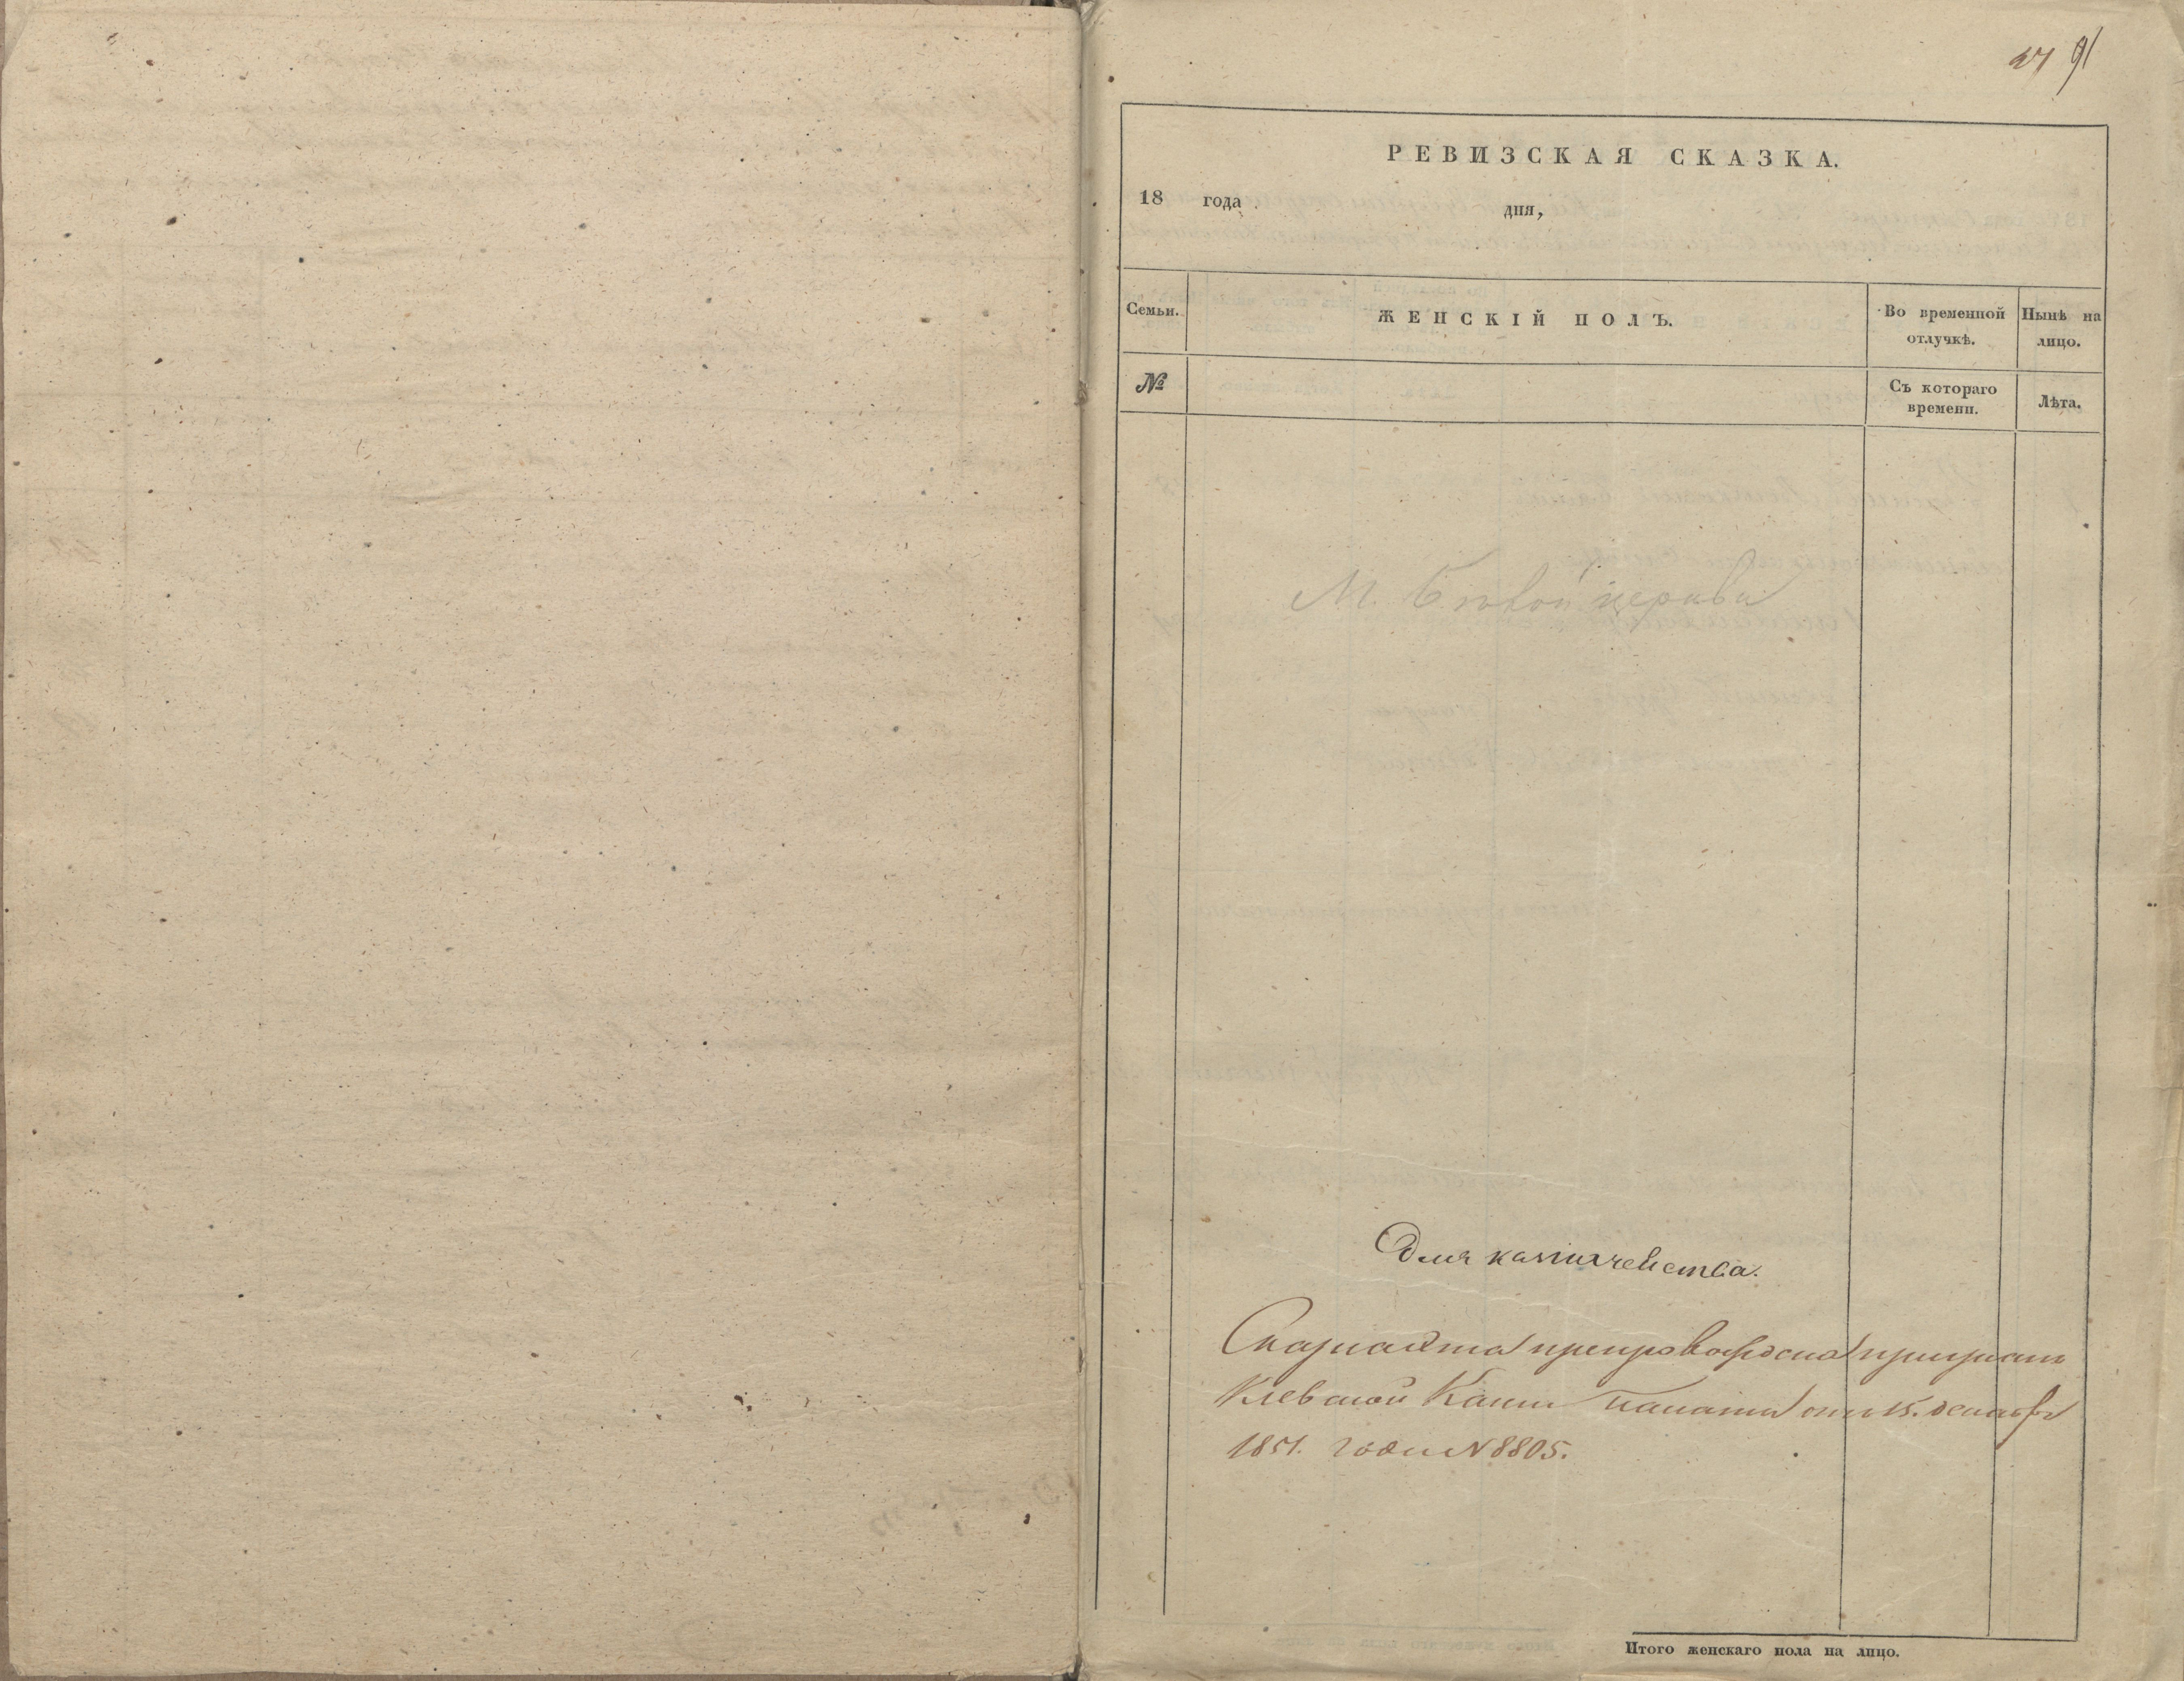 91
РЕВИЗСКАЯ СКАЗКА.
18 года дня,
Семьи. ЖЕНСКІЙ ПОЛЪ. Во временной отлучкѣ. Нынѣ на лицо.
№ Съ котораго времени. Лѣта.
М. Бѣлой церкви
Для казначейства.
Сказка эта препровождена при указѣ
Кіевской Казен Палаты отъ 15. декабря
1851. года N 8805.
Итого женскаго пола на лицо.